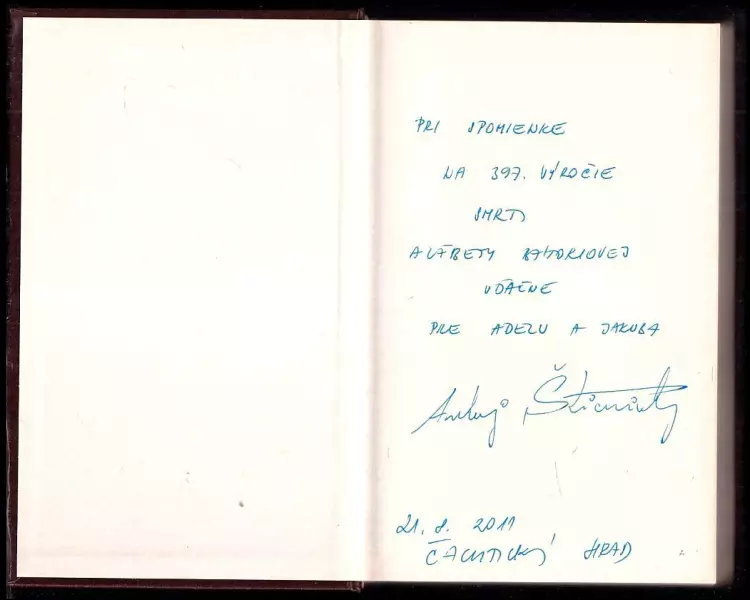 PRI SPOMIENKE
NA 397. VÝROČIE
SMRTI
ALŽBETY BÁTORIOVEJ
VĎAČNE
PRE ADELU A JAKUBA
Andrej Štiavnický
21. 8. 2011
ČACHTICKÝ HRAD